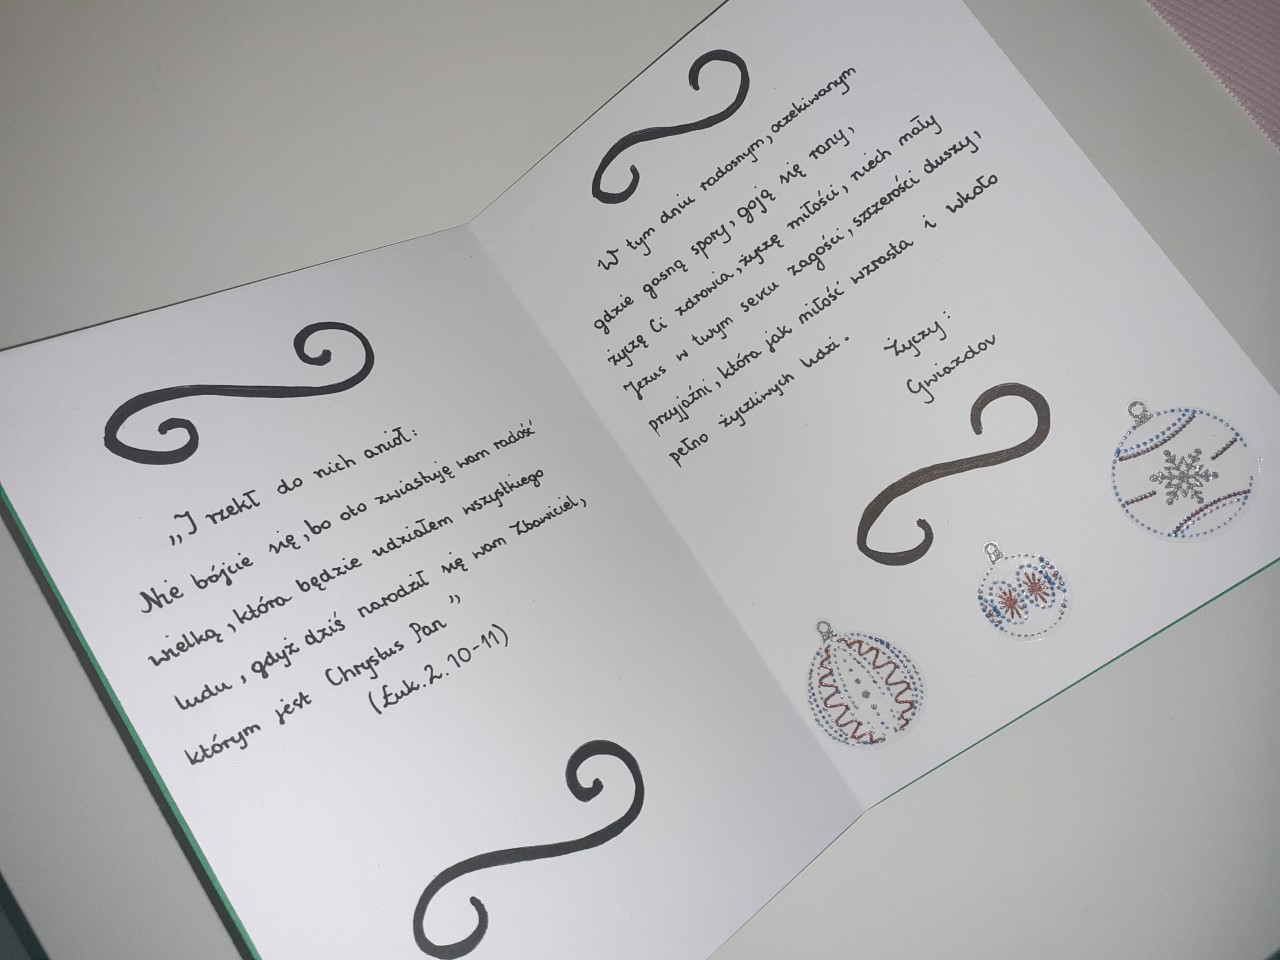 „I rzekł do nich anioł:
Nie bójcie się, bo oto zwiastuję wam radość
wielką, która będzie udziałem wszystkiego
ludu, gdyż dziś narodził się wam Zbawiciel,
którym jest Chrystus Pan”
(Łuk. 2. 10-11)
W tym dniu radosnym, oczekiwanym
gdzie gasną spory, goją się rany,
życzę Ci zdrowia, życzę miłości, niech mały
Jezus w twym sercu zagości, szczerości duszy,
przyjaźni, która jak miłość wzrasta i wkoło
pełno życzliwych ludzi.
Życzy:
Gwiazdov